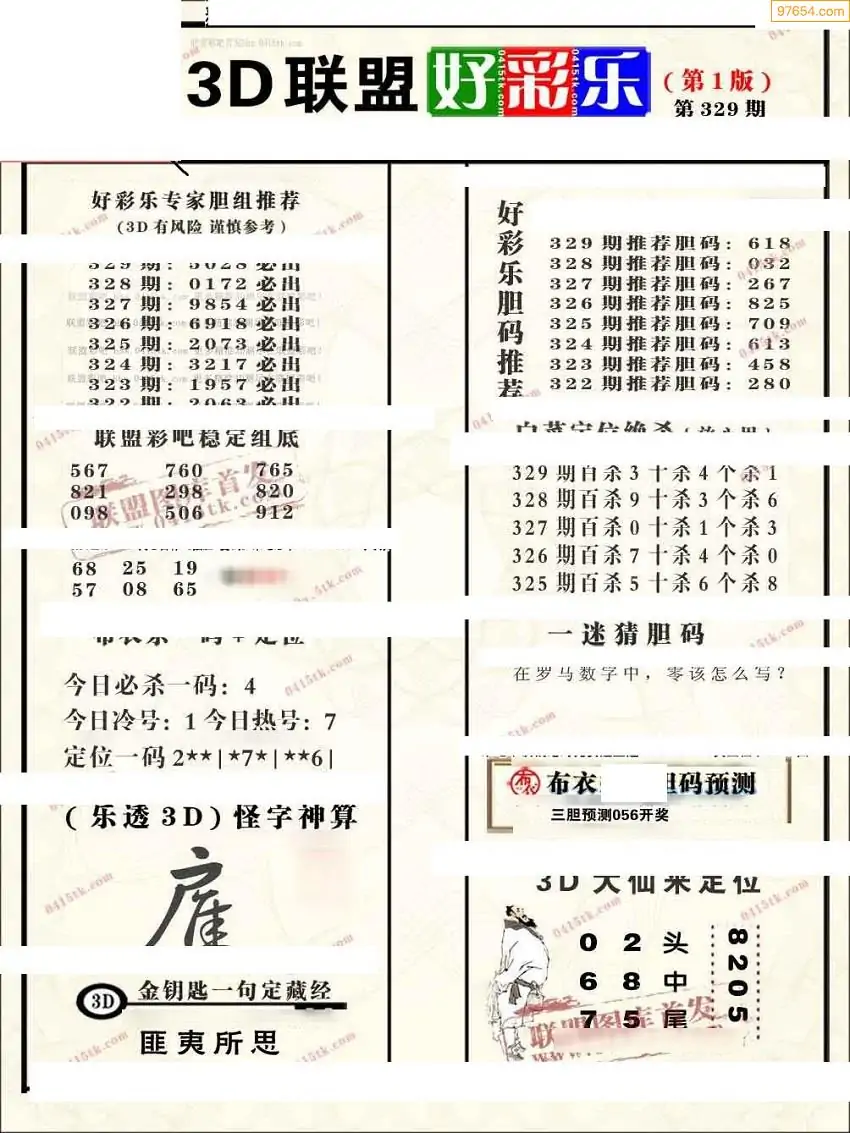 97654.com
3D联盟好彩乐
(第1版)
第329期
好彩乐专家胆组推荐
(3D有风险 谨慎参考)
329期: 5028必出
328期: 0172必出
327期: 9854必出
326期: 6918必出
325期: 2073必出
324期: 3217必出
323期: 1957必出
322期: 2063必出
联盟彩吧稳定组底
567 760 765
821 298 820
098 506 912
68 25 19
57 08 65
今日必杀一码: 4
今日冷号: 1 今日热号: 7
定位一码 2**|*7*|**6|
(乐透3D)怪字神算
3D
金钥匙一句定藏经
匪夷所思
好彩乐胆码推荐
329期推荐胆码: 618
328期推荐胆码: 032
327期推荐胆码: 267
326期推荐胆码: 825
325期推荐胆码: 709
324期推荐胆码: 613
323期推荐胆码: 458
322期推荐胆码: 280
329期百杀3十杀4个杀1
328期百杀9十杀3个杀6
327期百杀0十杀1个杀3
326期百杀7十杀4个杀0
325期百杀5十杀6个杀8
一迷猜胆码
在罗马数字中，零该怎么写？
布衣
胆码预测
三胆预测056开奖
3D大仙来定位
0 2 头
6 8 中
7 5 尾
8205
联盟图库首发
0415tk.com